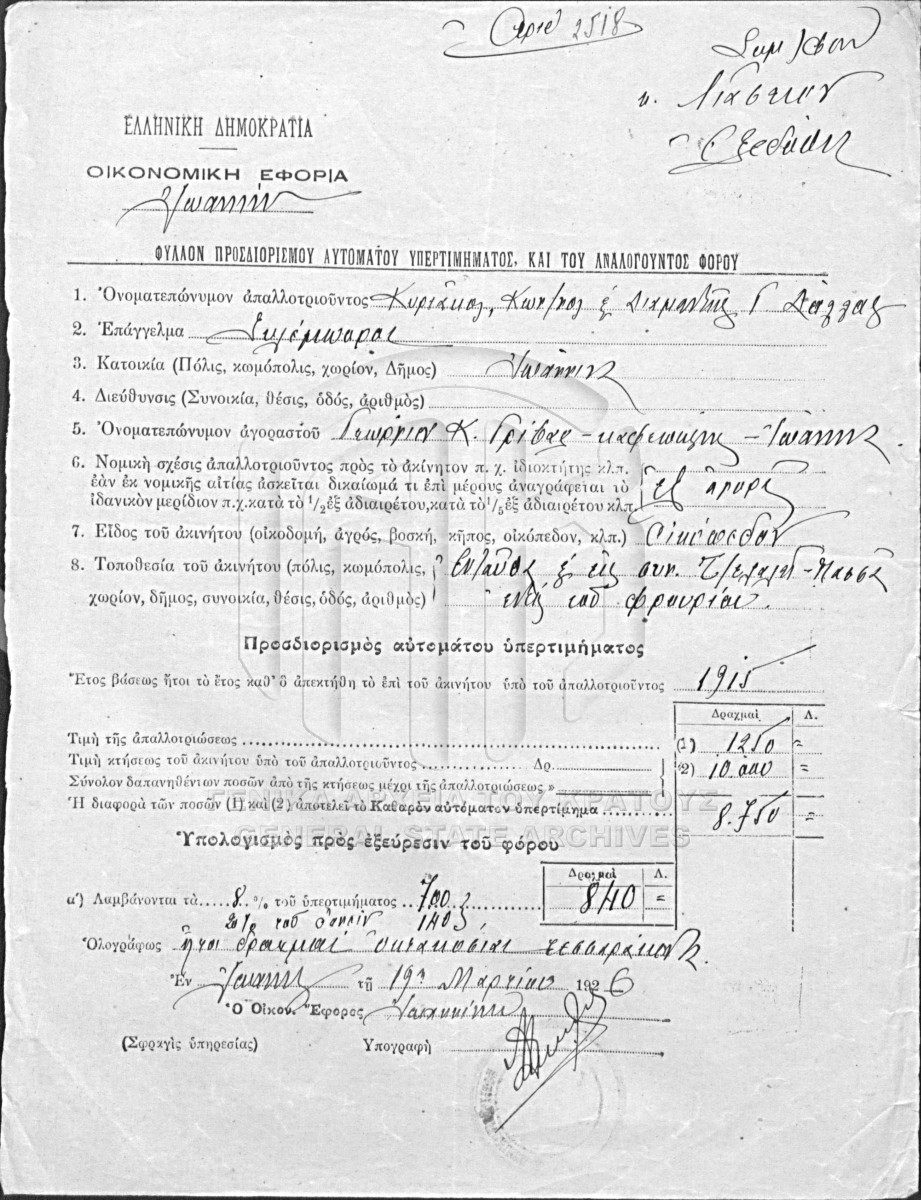 Αριθ 2518
ΕΛΛΗΝΙΚΗ ΔΗΜΟΚΡΑΤΙΑ
ΟΙΚΟΝΟΜΙΚΗ ΕΦΟΡΙΑ
Ἰωαννίν
ΦΥΛΛΟΝ ΠΡΟΣΔΙΟΡΙΣΜΟΥ ΑΥΤΟΜΑΤΟΥ ΥΠΕΡΤΙΜΗΜΑΤΟΣ, ΚΑΙ ΤΟΥ ΑΝΑΛΟΓΟΥΝΤΟΣ ΦΟΡΟΥ
1. Ὀνοματεπώνυμον ἀπαλλοτριοῦντος Κυριάκος, Κων/νος Διαμαντής Γ
2. Ἐπάγγελμα
3. Κατοικία (Πόλις, κωμόπολις, χωρίον, Δῆμος) Ἰωάννινα
4. Διεύθυνσις (Συνοικία, θέσις, ὁδός, ἀριθμὸς)
5. Ὀνοματεπώνυμον ἀγοραστοῦ Γεώργιον Κ. Γρίβας - καφεπώλης - Ἰωάννιν
6. Νομικὴ σχέσις ἀπαλλοτριοῦντος πρὸς τὸ ἀκίνητον π. χ. ἰδιοκτήτης κλπ.
ἐὰν ἐκ νομικῆς αἰτίας ἀσκεῖται δικαίωμά τι ἐπὶ μέρους ἀναγράφεται τὸ
ἰδανικὸν μερίδιον π.χ. κατὰ τὸ 1/2 ἐξ ἀδιαιρέτου, κατὰ τὸ 1/5 ἐξ ἀδιαιρέτου κλπ. ἐξ ἀγορᾶς
7. Εἶδος τοῦ ἀκινήτου (οἰκοδομή, ἀγρός, βοσκή, κῆπος, οἰκόπεδον, κλπ.) Οἰκόπεδον
8. Τοποθεσία τοῦ ἀκινήτου (πόλις, κωμόπολις, Ἐνταῦθα εἰς συν.
χωρίον, δῆμος, συνοικία, θέσις, ὁδός, ἀριθμός) ἐντός τοῦ φρουρίου.
Προσδιορισμὸς αὐτομάτου ὑπερτιμήματος
Ἔτος βάσεως ἤτοι τὸ ἔτος καθ' ὃ ἀπεκτήθη τὸ ἐπὶ τοῦ ἀκινήτου ὑπὸ τοῦ ἀπαλλοτριοῦντος 1915
Δραχμαὶ Λ.
Τιμὴ τῆς ἀπαλλοτριώσεως (1) 1250 =
Τιμὴ κτήσεως τοῦ ἀκινήτου ὑπὸ τοῦ ἀπαλλοτριοῦντος Δρ. (2) 10 000 =
Σύνολον δαπανηθέντων ποσῶν ἀπὸ τῆς κτήσεως μέχρι τῆς ἀπαλλοτριώσεως »
Ἡ διαφορὰ τῶν ποσῶν (1) καὶ (2) ἀποτελεῖ τὸ Καθαρὸν αὐτόματον ὑπερτίμημα 8.750 =
ΓΕΝΙΚΑ ΑΡΧΕΙΑ ΤΟΥ ΚΡΑΤΟΥΣ
GENERAL STATE ARCHIVES
Ὑπολογισμὸς πρὸς ἐξεύρεσιν τοῦ φόρου
Δραχμαὶ Λ.
α') Λαμβάνονται τὰ 8 % τοῦ ὑπερτιμήματος 700 840 =
20% 140
Ὁλογράφως ἤτοι δραχμαί ὀκτακόσιαι τεσσαράκοντα
Ἐν Ἰωανν τῇ 19ῃ Μαρτίου 1926
Ὁ Οἰκον. Ἔφορος Ἰωαννίνων
(Σφραγὶς ὑπηρεσίας) Ὑπογραφὴ